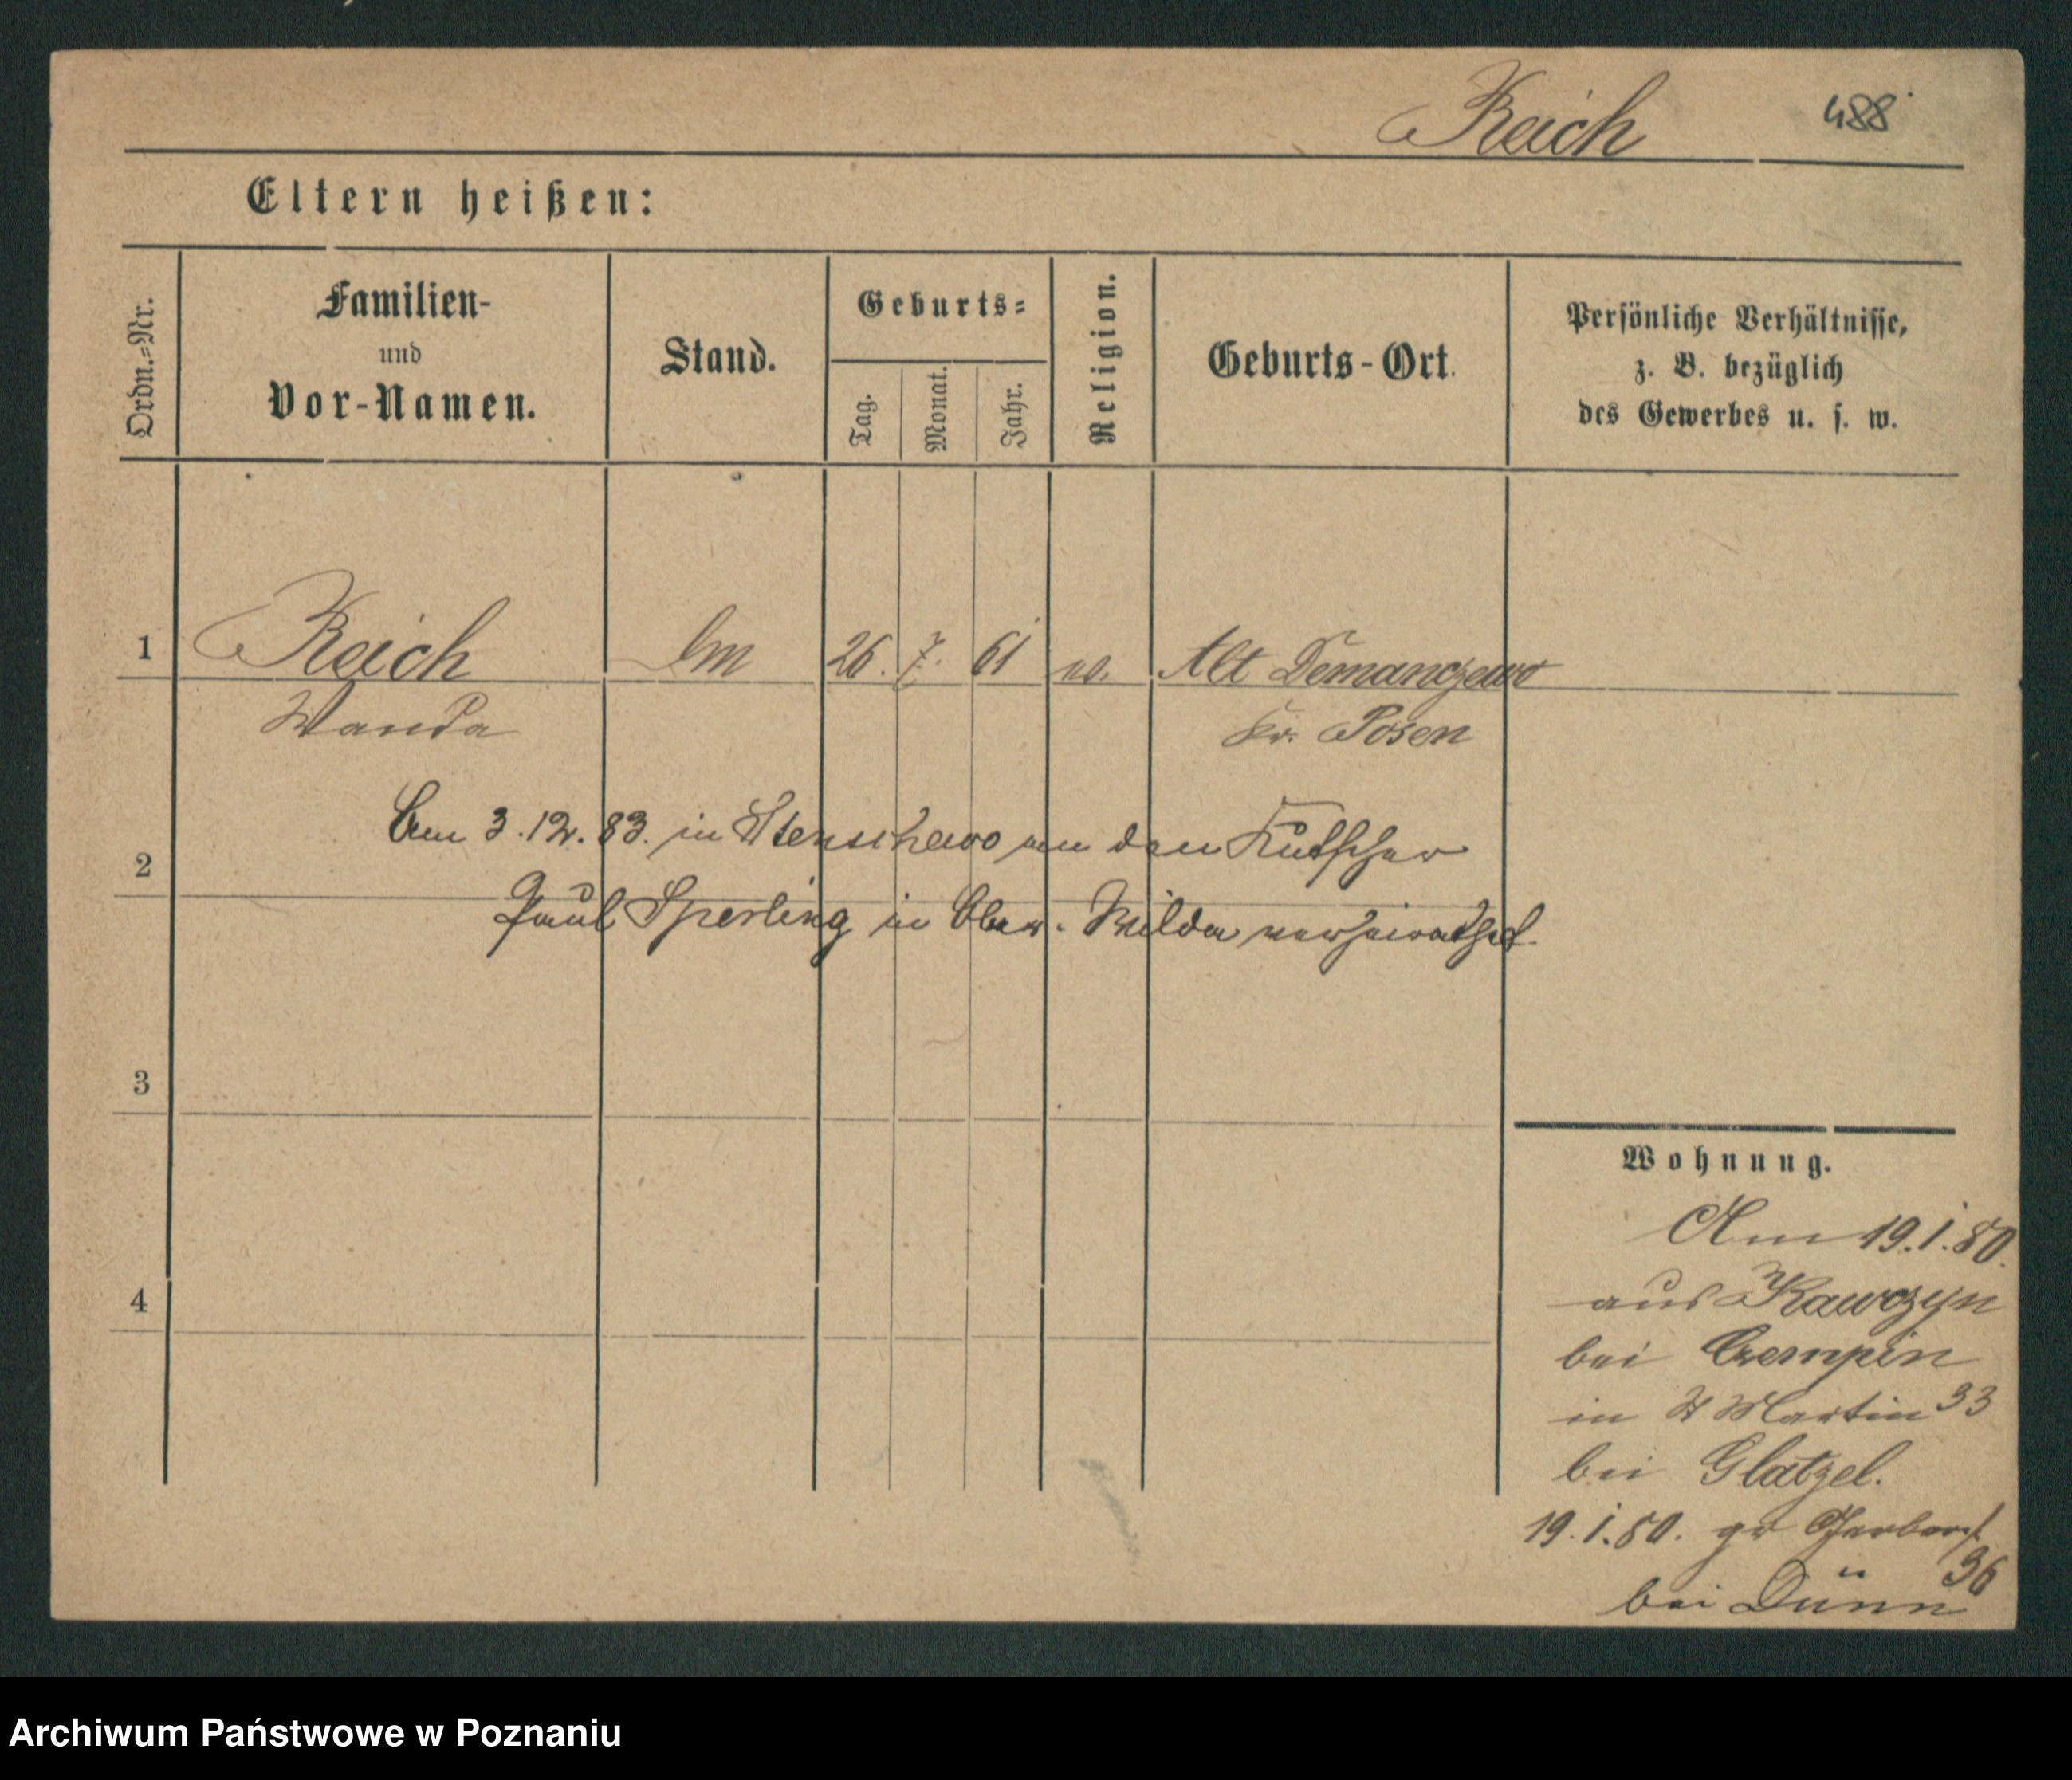 Reich 488
Eltern heißen:
Ordn.-Nr.
Familien-
und
Vor-Namen.
Stand.
Geburts-
Tag.
Monat.
Jahr.
Religion.
Geburts-Ort.
Persönliche Verhältnisse,
z. B. bezüglich
des Gewerbes u. s. w.
1 Reich 26. 7. 61 Alt Demanczewo
Wanda Kr. Posen
Am 3.12.83. in Stenschewo an den Kutscher
2
Paul Sperling in Ober-Wilda verheirathet.
3
4
Wohnung.
Am 19.1.80.
aus Kawczyn
bei Czempin
in St Martin 33
bei Glatzel.
19.1.80. gr Gerberst
36
bei Dünn
Archiwum Państwowe w Poznaniu